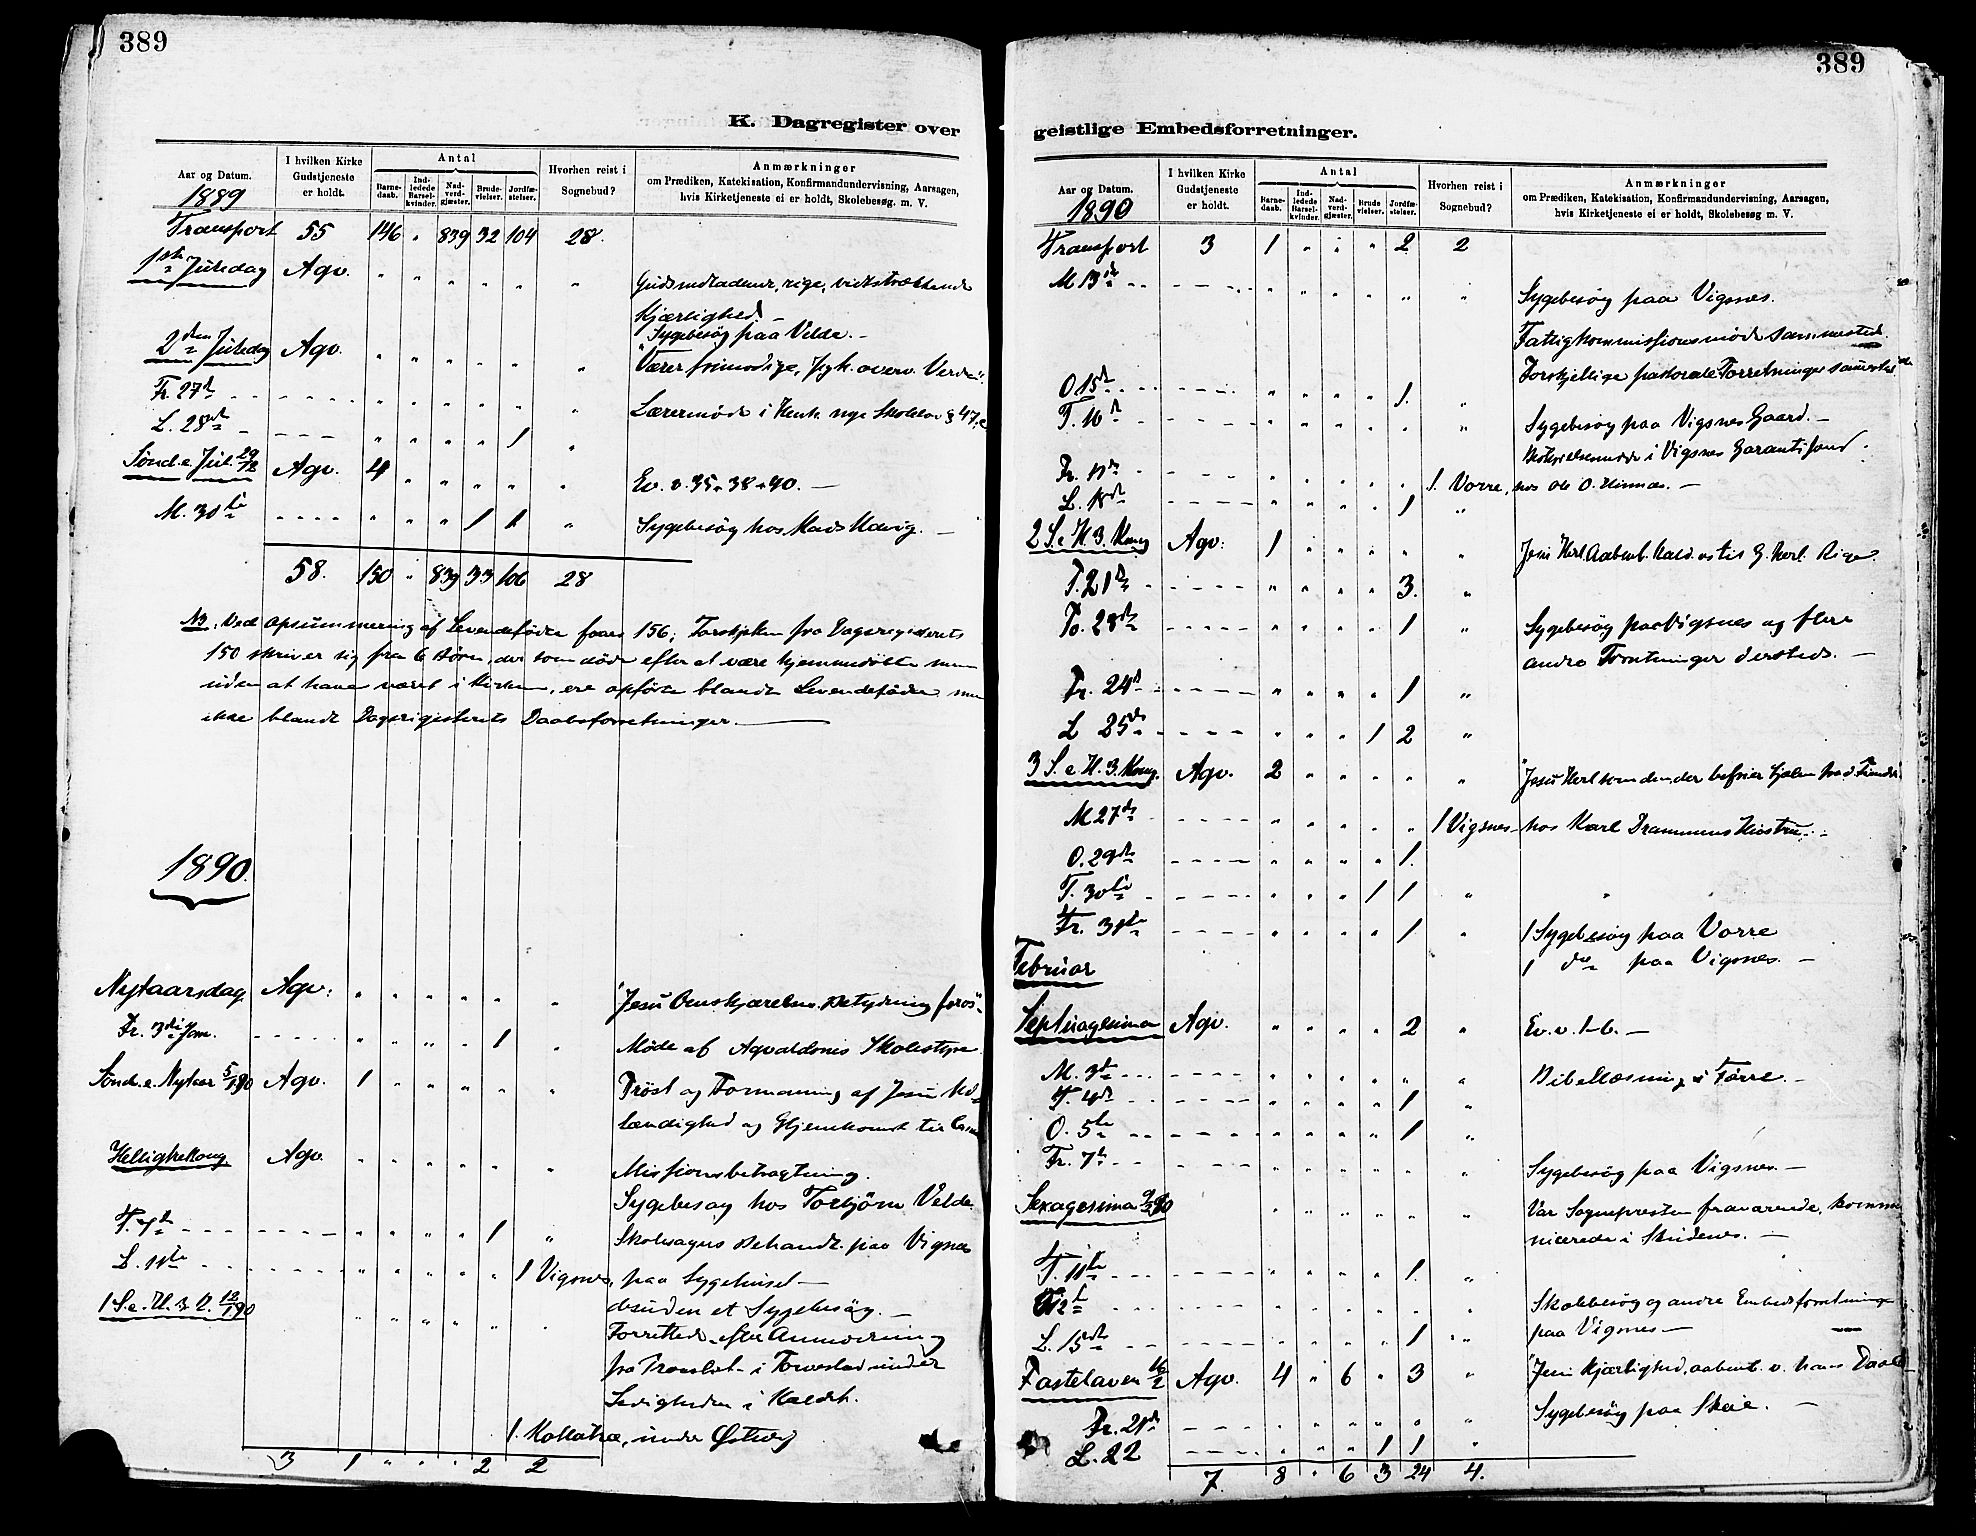 389
K. Dagregister over
Aar og Datum. I hvilken Kirke Gudstjeneste er holdt. Antal Barnedaab. Indledede Barselkvinder. Nadverdgjæster. Brudevielser. Jordfæstelser. Hvorhen reist i Sognebud? Anmærkninger om Prædiken, Katekisation, Konfirmandundervisning, Aarsagen, hvis Kirketjeneste ei er holdt, Skolebesøg. m. V.
1889
Transport 55 146 " 839 32 104 28.
1ste Juledag Agv. " " " " " "
Kjærlighed
Sygebesøg paa Velde. —
2den Juledag Agv. " " " " " "
Fr. 27de - - - - " " " " " "
Lærermøde i Henh. nye Skolelov § 47,
L. 28de - - - - " " " " 1 "
Sønd. e. Jul. 29/12 Agv. 4 " " " " " Ev. v. 35 - 38 - 40. —
M. 30te - - - - " " " 1 1 " Sygebesøg hos Mads —
58. 150 " 839 33 106 28
NB. Ved Opsummering af Levendefødte faaes 156; Forskjellen fra Dagregisterets
150 skriver sig fra 6 Børn, der som døde efter at være hjemmedøbte men
uden at have været i Kirken, ere opførte blandt Levendefødte men
ikke blandt Dagregisterets Daabsforretninger. —
1890.
Nytaarsdag Agv. " " " " " " "Jesu Omskjærelses Betydning for os"
Fr. 3die Jan. - - - - " " " " 1 " Møde af Agvaldsnes Skolestyre
Sønd. e. Nytaar 5/1 90 Agv. 1 " " " " " Trøst og Formaning af Jesu
lændighed og Hjemkomst til
Helligtrekong. Agv. " " " " " " Missionsbetragtning.
Sygebesøg hos Torbjørn Velde.
T. 7de - - - - " " " " 1 " Skolesagers Behandl. paa Vigsnes
L. 11te - - - - " " " " " 1 Vigsnes, paa Sygehuset —
desuden et Sygebesøg. —
1 S. e. H. 3 K. 12/1 90 " " " " " "
Forrettede efter Anmodning
fra Provsten i Torvestad under
Ledigheden i Kaldet.
1. under
3 1 " " " 2 2
389
geistlige Embedsforretninger.
Aar og Datum. I hvilken Kirke Gudstjeneste er holdt. Antal Barnedaab. Indledede Barselkvinder. Nadverdgjæster. Brudevielser. Jordfæstelser. Hvorhen reist i Sognebud? Anmærkninger om Prædiken, Katekisation, Konfirmandundervisning, Aarsagen, hvis Kirketjeneste ei er holdt, Skolebesøg m. V.
1890
Transport 3 1 " " " 2 2
M 13de - - - - " " " " " " Sygebesøg paa Vigsnes.
Fattigkommissionsmøde sammested.
Forskjellige pastorale Forretninger sammested
O 15de - - - - " " " " 1. "
T. 16de - - - - " " " " " " Sygebesøg paa Vigsnes Gaard. —
Bestyrelsesmøde i Vigsnes Garantifond.
Fr. 17de - - - - " " " " " 1. Vorre, hos Ole O. —
L. 18de - - - - " " " " 1 "
2 S. e. H. 3. Kong Agv. 1 " " " " "
T. 21de - - - - " " " " 3. "
To. 23de - - - - " " " " 1 " Sygebesøg paa Vigsnes og flere
andre Forretninger dersteds. —
Fr. 24de - - - - " " " " 1 "
L 25de - - - - " " " 1 2 "
3 S. e. H. 3. Kong. Agv. 2 " " " " " "Jesu Herl. som den, der befrier Sjælen fra
M 27de " " " " " 1 Vigsnes hos Karl
O. 29de - - - - " " " " 1. "
T. 30te - - - - " " " 1 1 " " "
Fr. 31te - - - - " " " " 1 " 1 Sygebesøg paa Vorre
1 do paa Vigsnes. —
Februar
Septuagesima Agv. " " " " 2 " Ev. v. 1-6. —
M. 3die - - - - " " " " " " Bibellæsning i Førre. —
T. 4de - - - - " " " " 1 "
O. 5te - - - - " " " " 1 "
Fr. 7de - - - - " " " " " " Sygebesøg paa Vigsnes. —
Sexagesima 9/2 90 " " " " " " Var Sognepresten fraværende,
i Skudenes. —
T. 11te - - - - " " " " 1. "
12te - - - - " " " " " " Skolebesøg og andre Embedsforretninger
paa Vigsnes —
L. 15de - - - - " " " " 1 "
Fastelaven 16/2 Agv. 4 " 6 " 3 " "Jesu Kjærlighed, aabenb. v. hans
Sygebesøg paa Skeie. —
Fr. 21de - - - - " " " " " "
L. 22 - - - - " " " 1 1 "
7. 8 " 6 3 24 4.